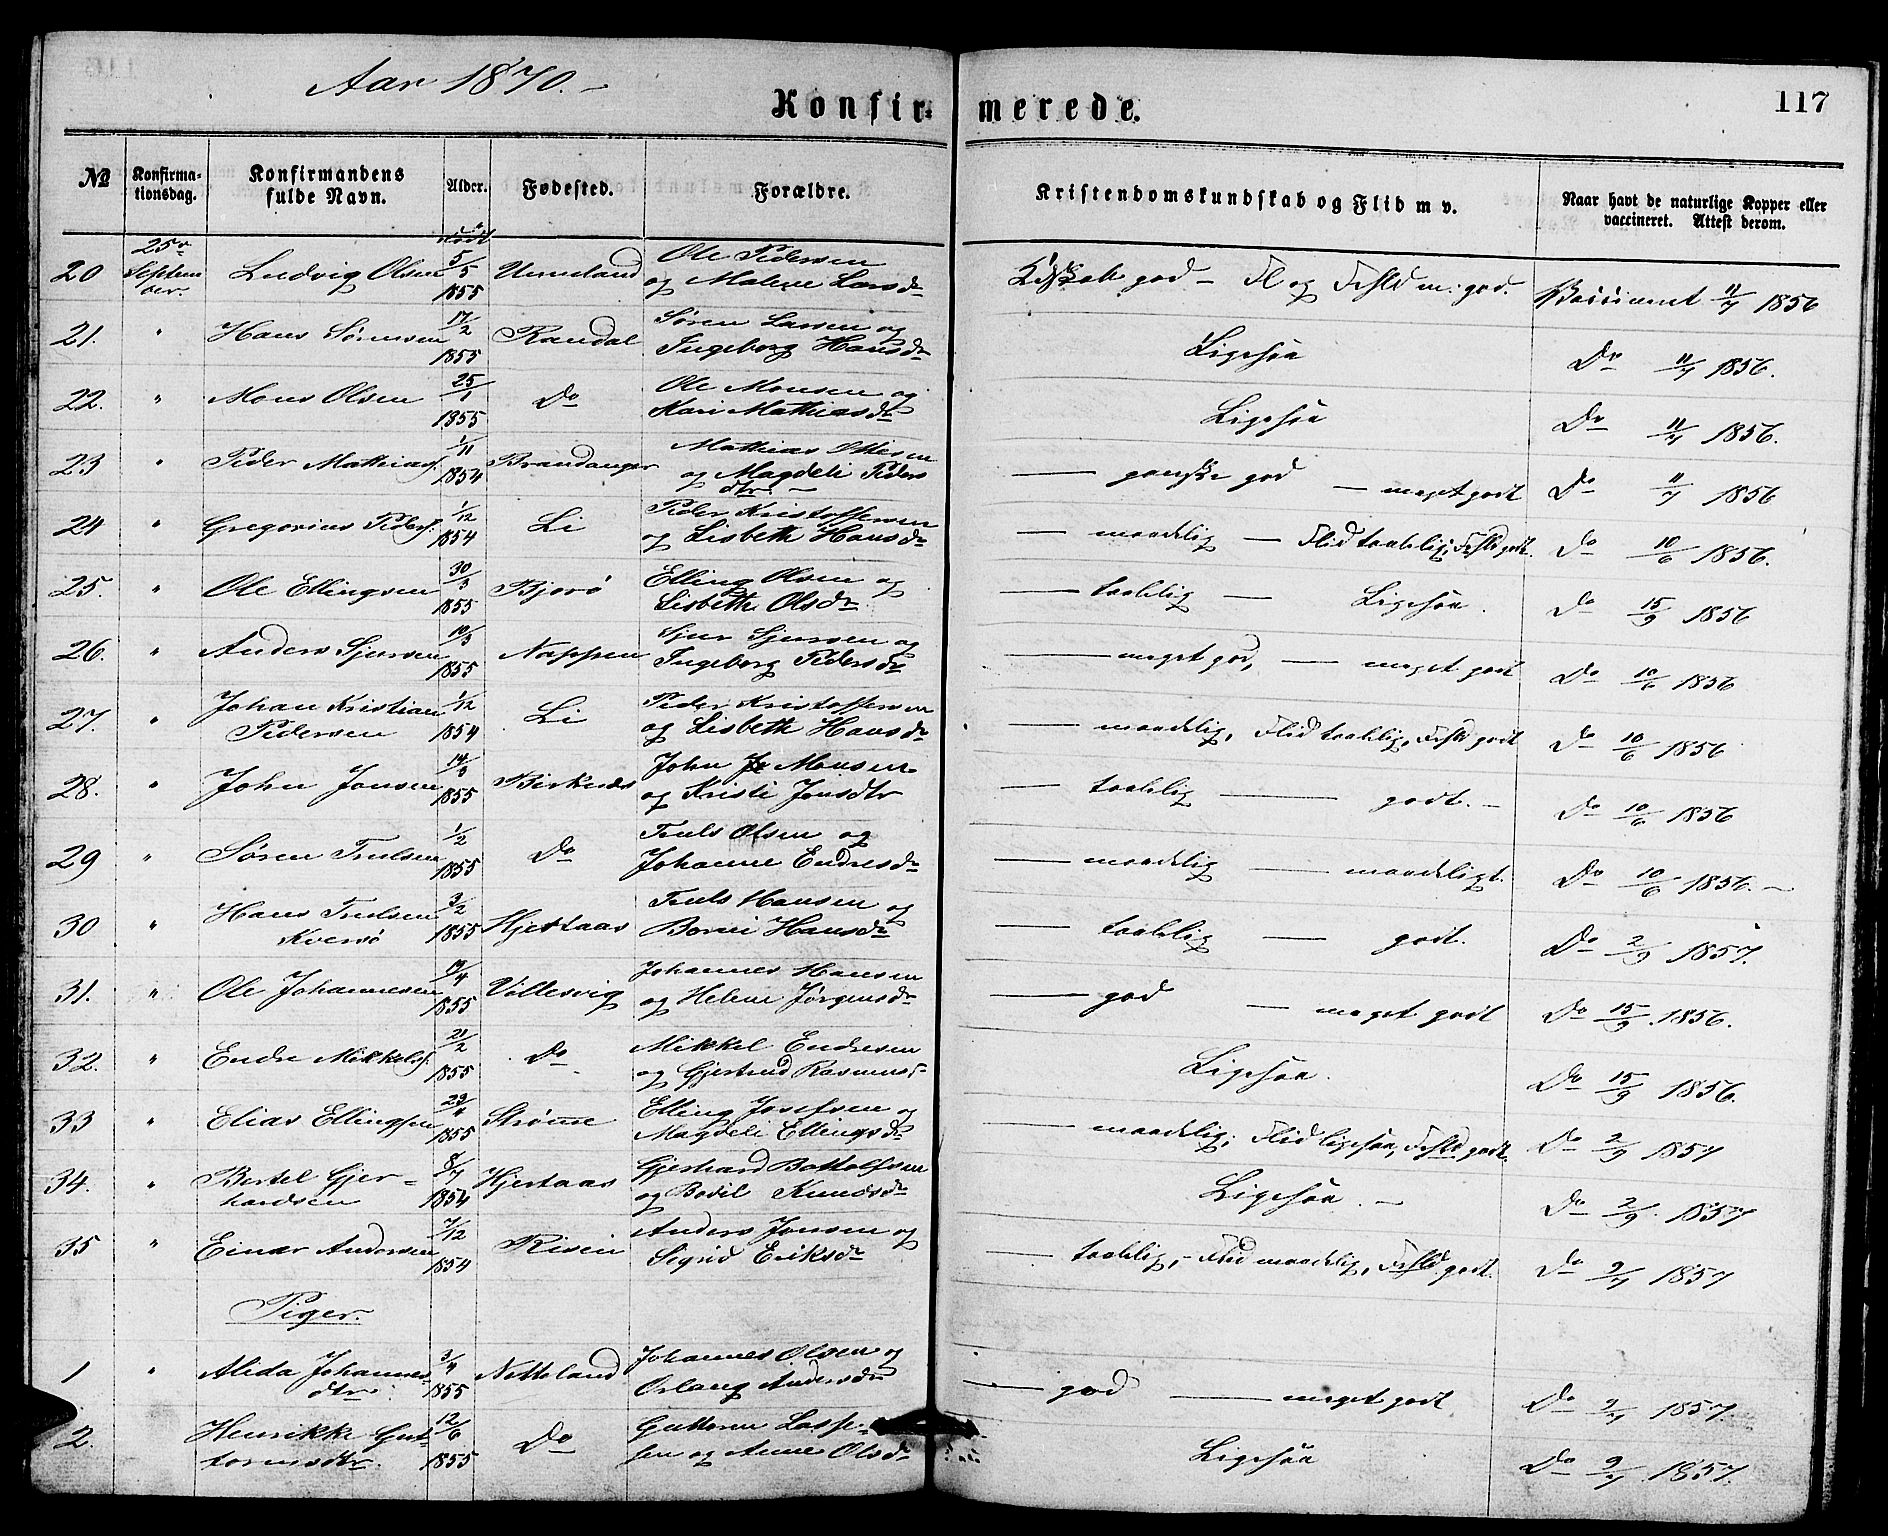 Aar 1870.
Konfirmerede.
117
№ Konfirmationsdag. Konfirmandens fulde Navn. Alder. Fødested. Forældre. Kristendomskundskab og Flid m v. Naar havt de naturlige Kopper eller vaccineret. Attest derom.
20 25de September. Ludvig Olsen født 5/5 1855 Unneland Ole Pedersen og Malene Larsdr Kdskab god – Fl og Fhld m: god. Vaccineret 11/7 1856
21. " Hans Sørensen 17/2 1855 Randal Søren Larsen og Ingeborg Hansdr Ligesaa Do 11/7 1856.
22. " Mons Olsen 25/1 1855 Do Ole Monsen og Kari Mathiasdr Ligesaa Do 11/7 1856.
23 " Peder Mathias. 1/11 1854 Brandanger Mathias Ottesen og Magdeli Pedersdtr – ganske god – meget godt Do 11/7 1856
24 " Gregorius Peders. 1/12 1854 Li Peder Kristoffersen og Lisbeth Hansdr – maadelig – Flid taalelig; Fhld godt. Do 10/6 1856.
25. " Ole Ellingsen 30/3 1855 Bjørø Elling Olsen og Lisbeth Olsdr – taalelig – Ligesaa. Do 15/9 1856
26. " Anders Sjursen 10/3 1855 Nappen Sjur Sjursen og Ingeborg Pedersdr – meget god, – meget godt Do 10/6 1856
27. " Johan Kristian Pedersen 1/12 1854 Li Peder Kristoffersen og Lisbeth Hansdr – maadelig, Flid taalelig, Fhld godt Do 10/6 1856
28. " John Jonsen 14/3 1855 Birkenes John Monsen og Kristi Jonsdtr – taalelig – godt. – Do 10/6 1856
29 " Søren Trulsen 1/2 1855 Do Truls Olsen og Johanne Endresdr – maadelig – maadeligt. Do 10/6 1856. –
30 " Hans Trulsen Kversø 3/2 1855 Hjertaas Truls Hansen og Borni Hansdr – taalelig – godt. Do 2/9 1857.
31. " Ole Johannesen 19/4 1855 Villesvig Johannes Hansen og Helene Jørgensdr – god – meget godt Do 15/9 1856.
32. " Endre Mikkels. 21/2 1855 Do Mikkel Endresen og Gjertrud Rasmusd Ligesaa. Do 15/9 1856.
33 " Elias Ellingsen 29/4 1855 Strømme Elling Josefsen og Magdeli Ellingsdr – maadelig; Flid ligesaa, Fhld godt. Do 2/9 1857
34. " Bertel Gjerhardsen 8/7 1854 Hjertaas Gjerhard Bottolfsen og Bodil Knudsdr Ligesaa. – Do 2/9. 1857
35 " Einar Andersen 7/12 1854 Risein Anders Jonsen og Sigrid Eriksdr – taalelig, – Flid maadelig, Fhld. godt. Do 9/7 1857
Piger.
1 " Alida Johannesdtr. 3/4 1855 Netteland Johannes Olsen og Orlaug Andersdr – god – meget godt Do 9/7 1857.
2. Henrikke Guttormsdtr. 12/6 1855 Do Guttorm Lassesen og Anne Olsdr Ligesaa Do 9/7 1857.